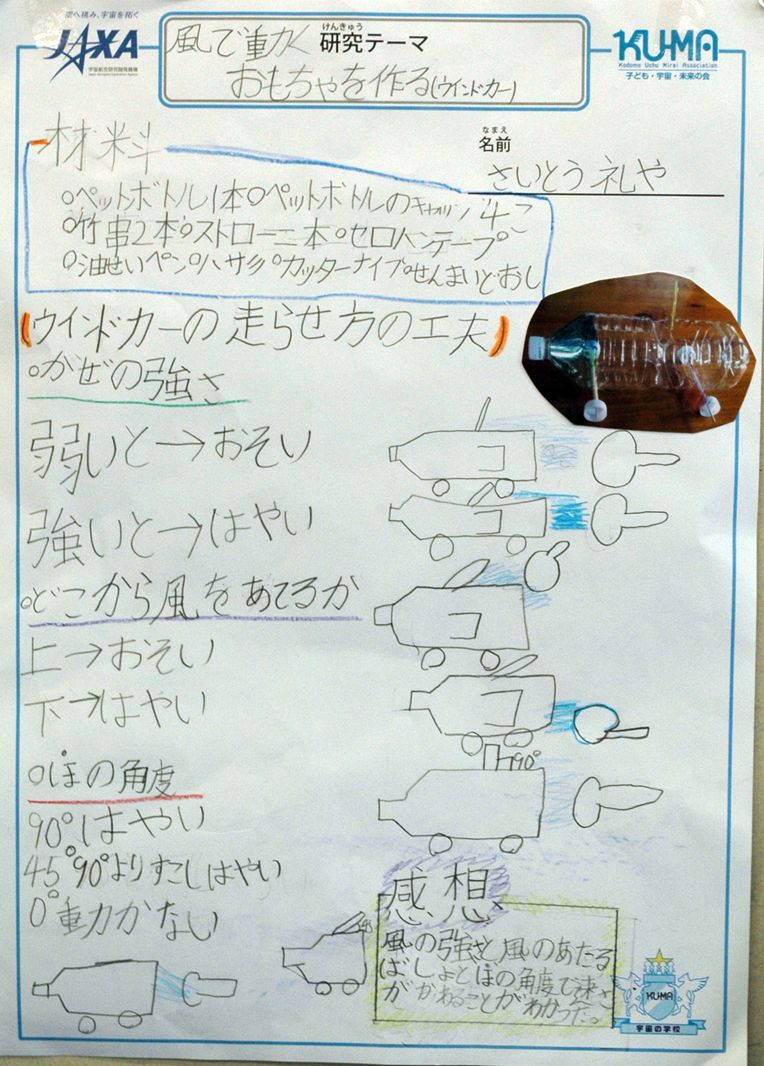 空へ挑み、宇宙を拓く
JAXA
宇宙航空研究開発機構
Japan Aerospace Exploration Agency
けんきゅう
研究テーマ
風で動く
おもちゃを作る(ウインドカー)
KU-MA
Kodomo Uchu Mirai Association
子ども・宇宙・未来の会
なまえ
名前
さいとう 礼や
材料
○ペットボトル1本○ペットボトルのキャップ4こ
○竹串2本○ストロー二本○セロハンテープ
○油せいペン○ハサミ○カッターナイフ○せんまいどおし
(ウインドカーの走らせ方の工夫)
○かぜの強さ
弱いと→おそい
強いと→はやい
○どこから風をあてるか
上→おそい
下→はやい
○ほの角度
90°
90°はやい
45°90°よりすこしはやい
0°動かない
45
感想
風の強さと風のあたる
ばしょとほの角度で速さ
がかわることがわかった。
KU-MA
宇宙の学校